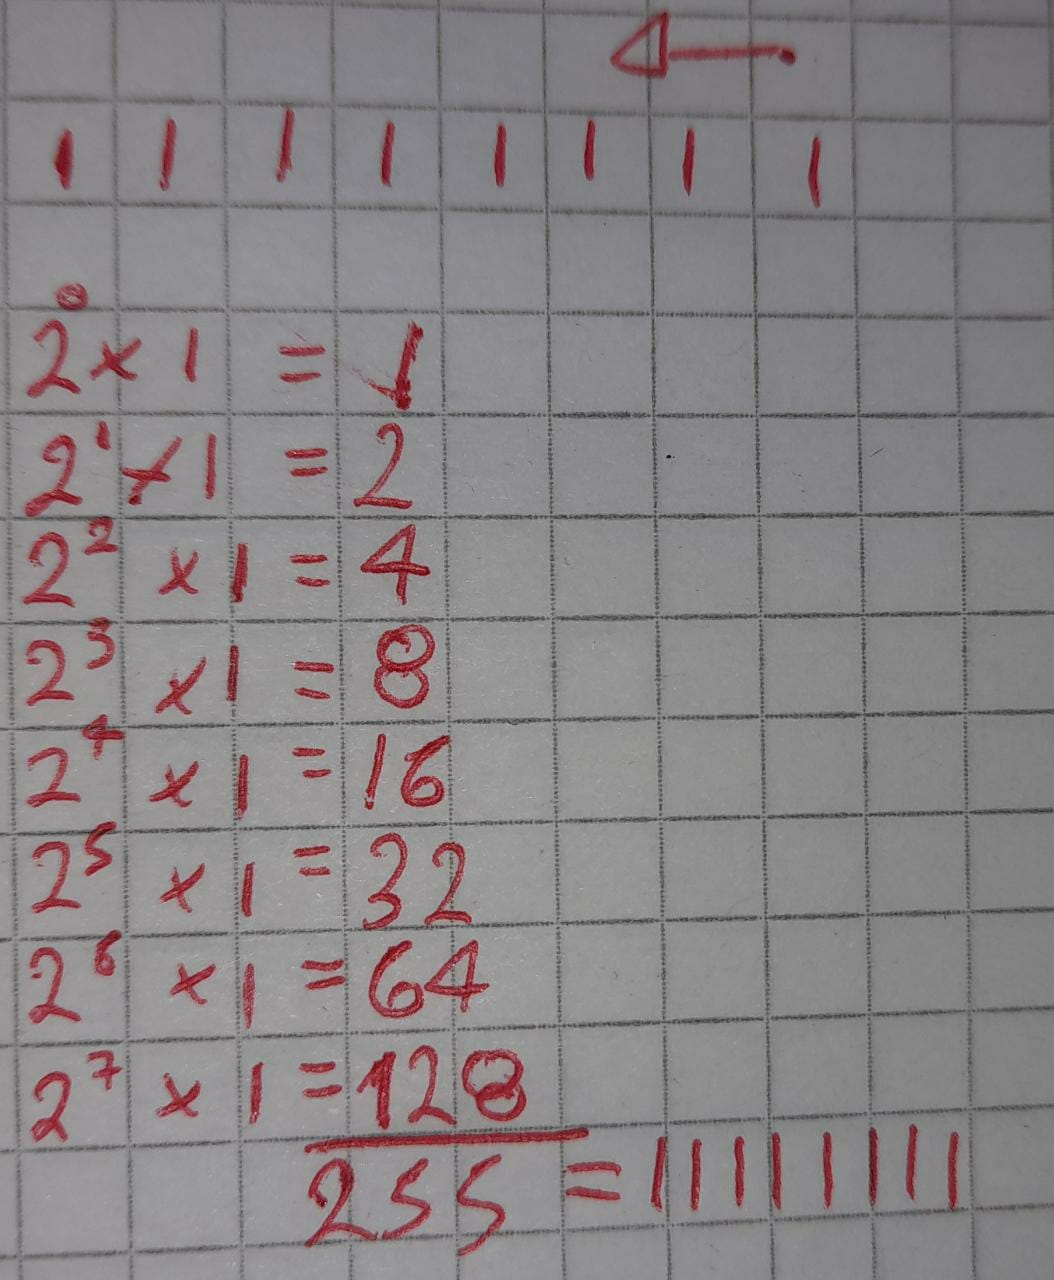 1 1 1 1 1 1 1 1
2⁰ × 1 = 1
2¹ × 1 = 2
2² × 1 = 4
2³ × 1 = 8
2⁴ × 1 = 16
2⁵ × 1 = 32
2⁶ × 1 = 64
2⁷ × 1 = 128
255 = 11111111